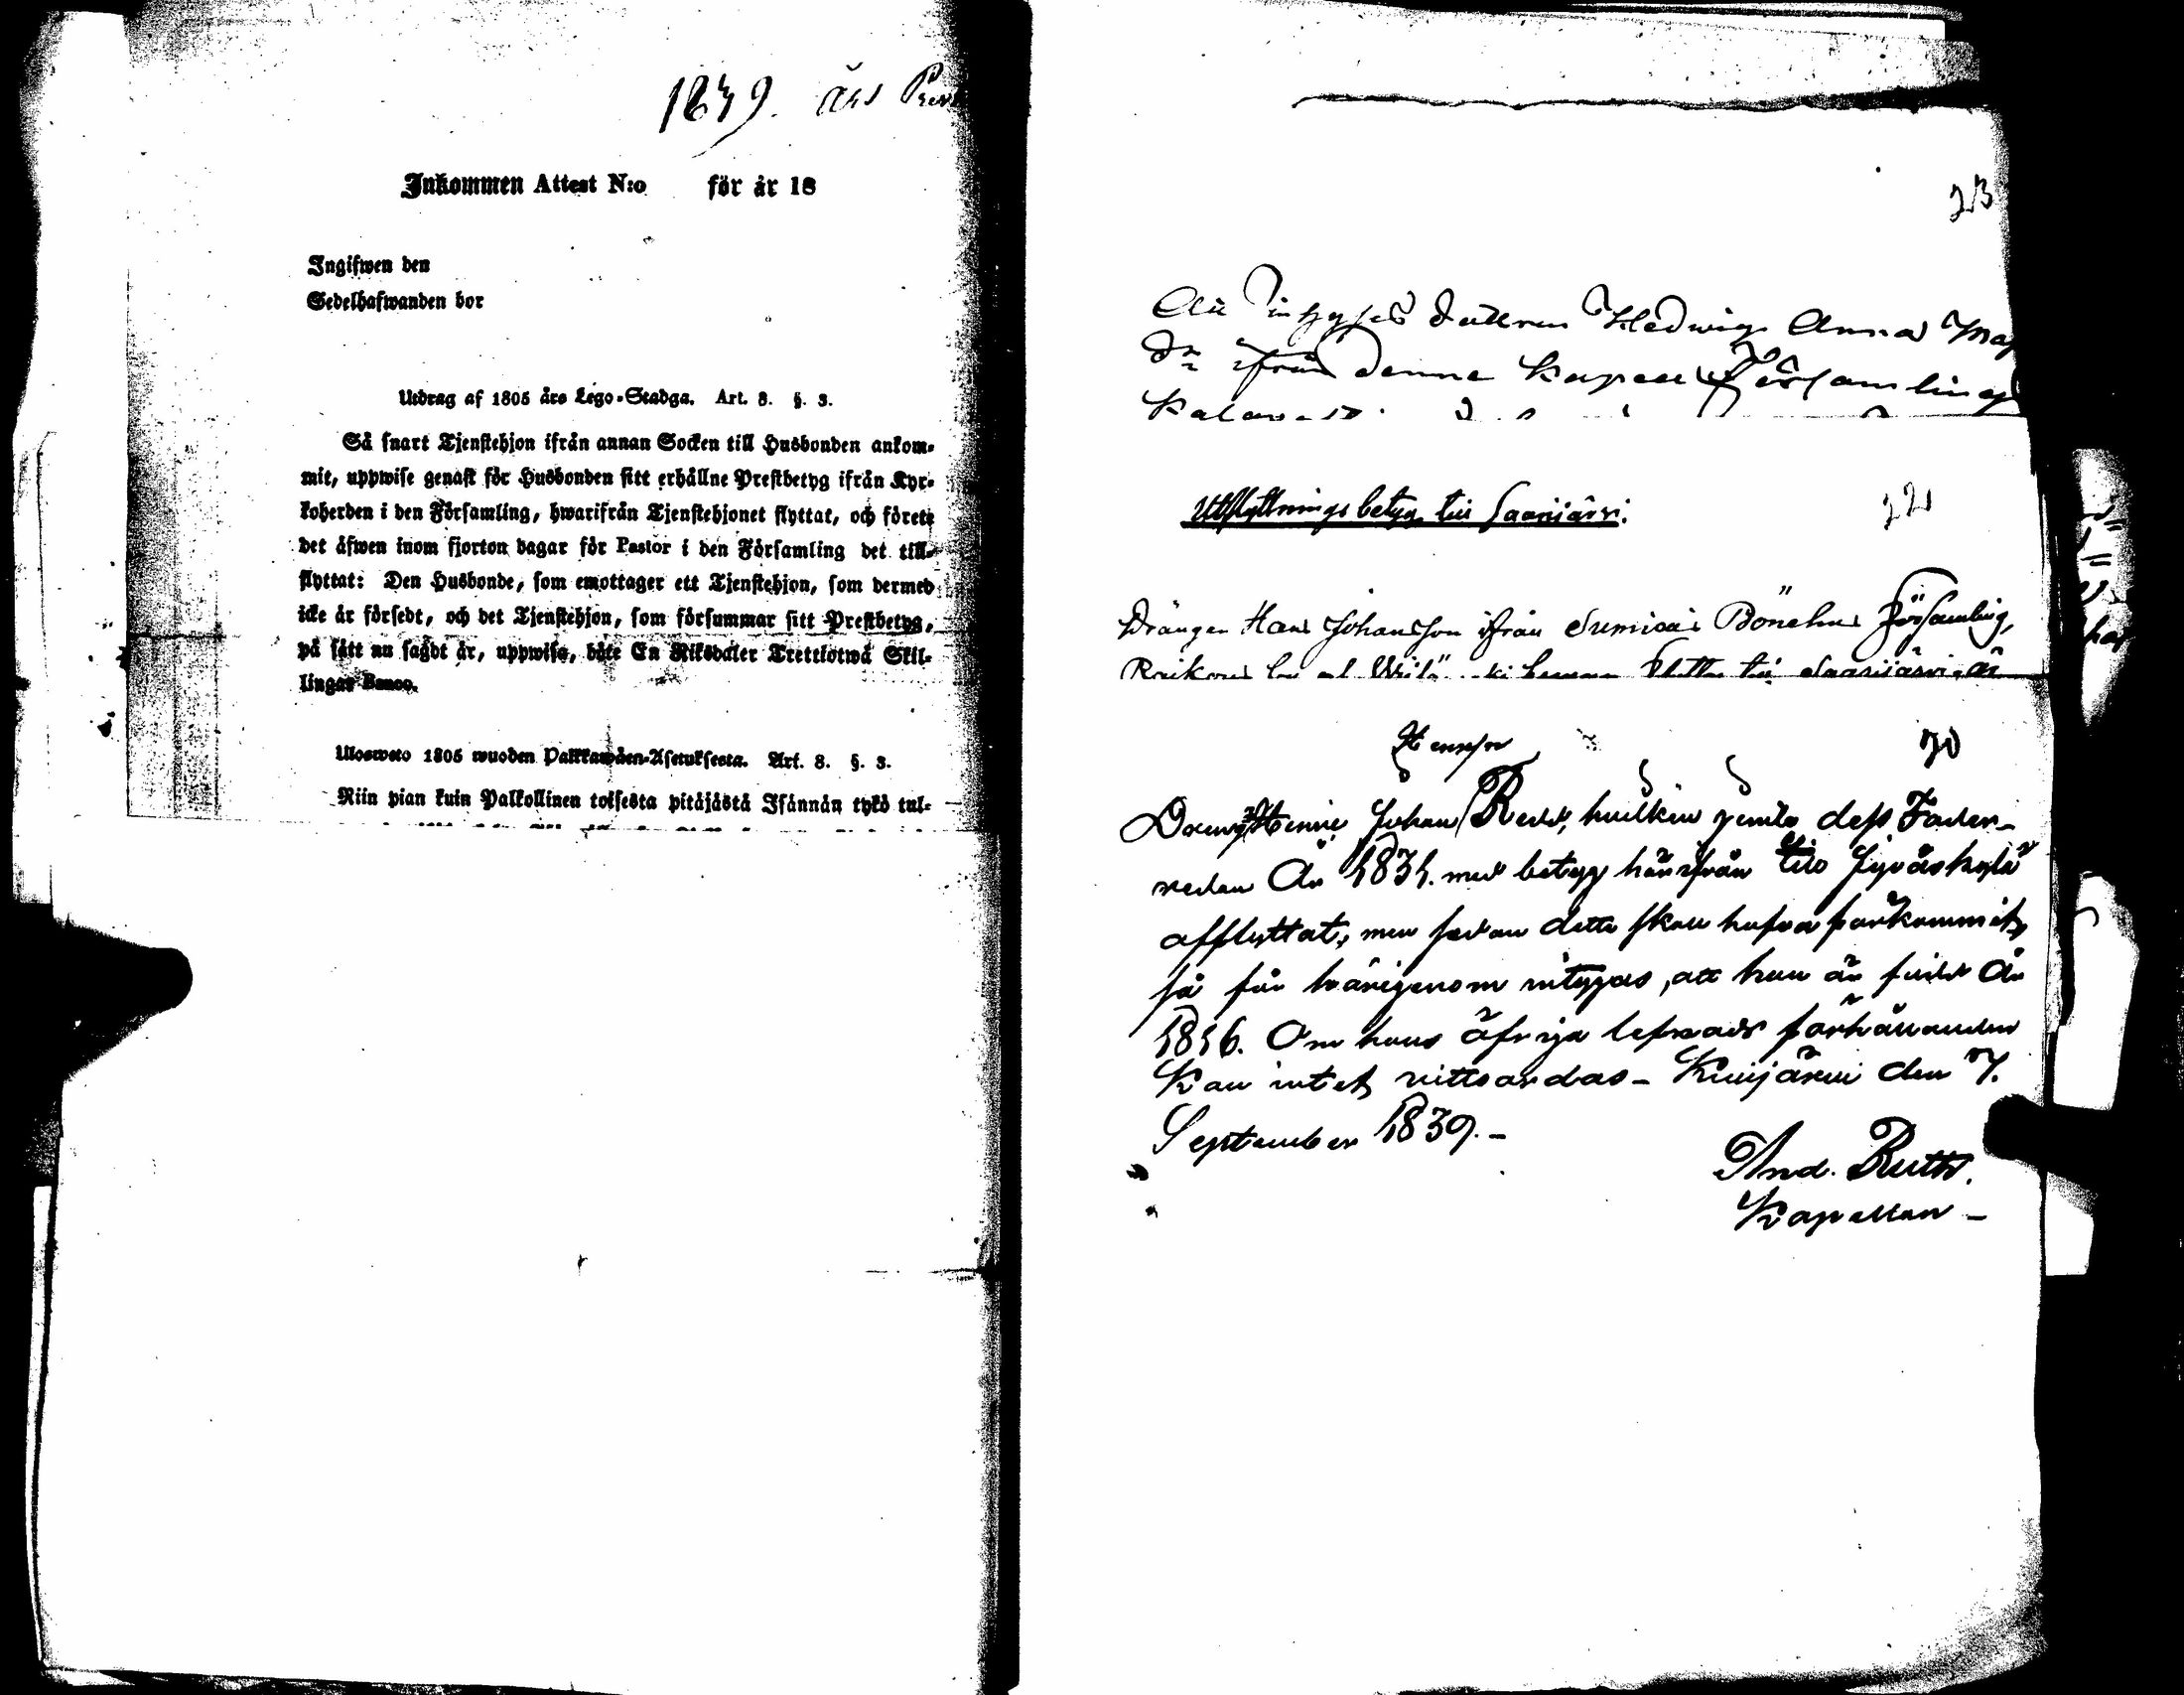 1839. års
Inkommen Attest N:o för år 18
Ingifwen den
Sedelhafwanden bor
Utdrag af 1805 års Lego-Stadga. Art. 8. §. 3.
Så snart Tjenstehjon ifrån annan Socken till Husbonden ankom-
mit, uppwise genast för Husbonden sitt erhållne Prestbetyg ifrån Kyr-
koherden i den Församling, hwarifrån Tjenstehjonet flyttat, och förete
det äfwen inom fjorton dagar för Pastor i den Församling det till-
flyttat: Den Husbonde, som emottager ett Tjenstehjon, som dermed
icke är försedt, och det Tjenstehjon, som försummar sitt Prestbetyg,
på sätt nu sagdt är, uppwisa, böte En Riksdaler Trettiotwå Skil-
lingar Banco.
Ulosweto 1805 wuoden Palkkawäen-Asetuksesta. Art. 8. §. 3.
Niin pian kuin Palkollinen toisesta pitäjästä Isännän tykö tul-
23
Hedwig Anna
ifrån denna Kapell Församling
Utflyttnings betyg till Saarijärvi.
Drängen Hans Johansson ifrån Sumiais Bönehus Församling,
flytta till Saarijärvi
70
Johan hvilken dess Fader
redan År 1831. med betyg härifrån till Jyväskylä
afflyttat, men sedan detta skall hafva förkommit,
så får härigenom intygas, att han är född År
1816. Om hans öfriga lefnads förhållanden
kan intet vittsordas – Kivijärvi den 7.
September 1839. –
And. Ruth.
Kapellan –